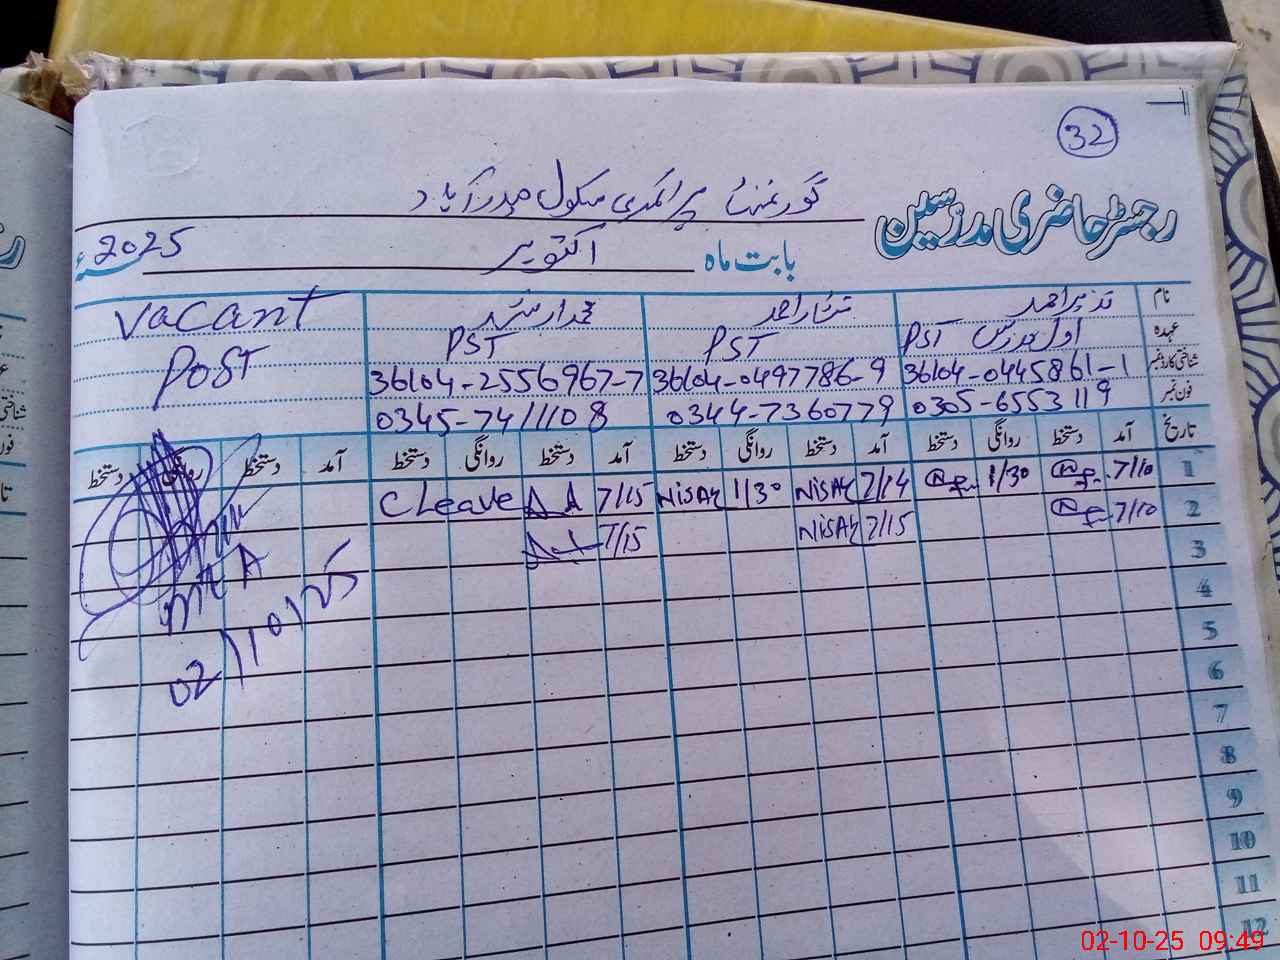 32
رجسٹر حاضری مدرسین
گورنمنٹ پرائمری سکول حیدرآباد
بابت ماہ اکتوبر 2025ء
نام نذیر احمد نثار احمد محمد ارشد Vacant
عہدہ اول مدرس PST PST PST Post
شناختی کارڈ نمبر 36104-0445861-1 36104-0497786-9 36104-2556967-7
فون نمبر 0305-6553119 0344-7360779 0345-7411108
تاریخ آمد دستخط روانگی دستخط آمد دستخط روانگی دستخط آمد دستخط روانگی دستخط آمد دستخط روانگی دستخط
1 7/10 1/30 7/14 NiSAR 1/30 NiSAR 7/15 C Leave
2 7/10 7/15 NiSAR 7/15
3
4
5
6
7
8
9
10
11
12
MEA
02/10/25
02-10-25 09:49